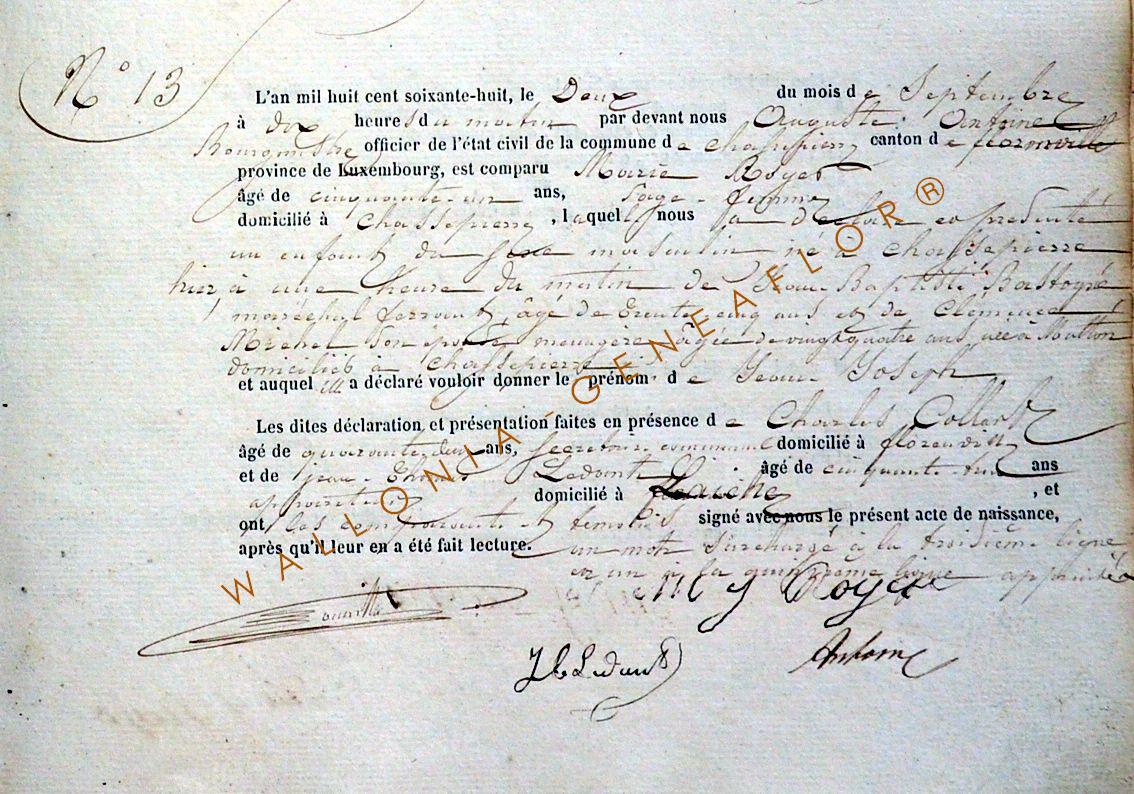 N° 13
L'an mil huit cent soixante-huit, le Deux du mois de Septembre
à dix heures du matin par devant nous Auguste Antoine
Bourgmestre officier de l'état civil de la commune de Chassepierre canton de florenville
province de Luxembourg, est comparu Marie Royer
âgé de cinquante-un ans, Sage-femme
domicilié à Chassepierre, laquelle nous a déclaré et présenté
un enfant du sexe masculin né à Chassepierre
hier, à une heure du matin de Jean Baptiste Bastogne
maréchal ferrant, âgé de trente cinq ans et de Clémence
Michel son épouse ménagère âgée de vingt quatre ans née à
domiciliés à Chassepierre
et auquel elle a déclaré vouloir donner le prénom de Jean Joseph
Les dites déclaration et présentation faites en présence de Charles Collart
âgé de quarante deux ans, secrétaire communal domicilié à florenville
et de jean Ledant âgé de cinquante ans
appariteur domicilié à Laiche, et
ont les comparante et témoins signé avec nous le présent acte de naissance,
après qu'il leur en a été fait lecture. un mot surchargé à la troisième ligne
et un à la quinzième ligne approuvés
M J Royer
J Ledant
Antoine
WALLONIA GENEAFLOR®